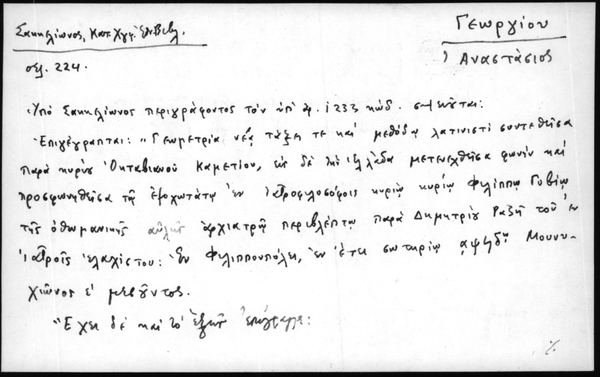 Γεωργίου
Ἀναστάσιος
Σακκελίωνος, Κατ. Χγφ. Ἐθν. Βιβλ.
σελ. 224.
Ὑπὸ Σακκελίωνος περιγράφοντος τὸν ὑπ' ἀρ. 1233 κώδ. σημειοῦται:
Ἐπιγέγραπται: "Γεωμετρία νέᾳ τάξει τε καὶ μεθόδῳ λατινιστὶ συντεθεῖσα
παρὰ κυρίου Ὀκταβιανοῦ Καμετίου, εἰς δὲ τὴν Ἑλλάδα μετενεχθεῖσα φωνὴν καὶ
προσφωνηθεῖσα τῷ ἐξοχωτάτῳ ἐν ἰατροφιλοσόφοις κυρίῳ κυρίῳ Φιλίππῳ Γοβίῳ
τῆς ὀθωμανικῆς αὐλῆς ἀρχιατρῷ περιβλέπτῳ παρὰ Δημητρίου Ῥαζῆ τοῦ ἐν
ἰατροῖς ἐλαχίστου: Ἐν Φιλιππουπόλει, ἐν ἔτει σωτηρίῳ Μουνυ-
χιῶνος ε΄ μεσοῦντος.
"Ἔχει δὲ καὶ τὸ ἑξῆς ἐπίγραμμα: